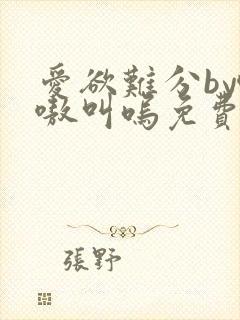 愛欲難分by
嗷叫嗚免費
張野